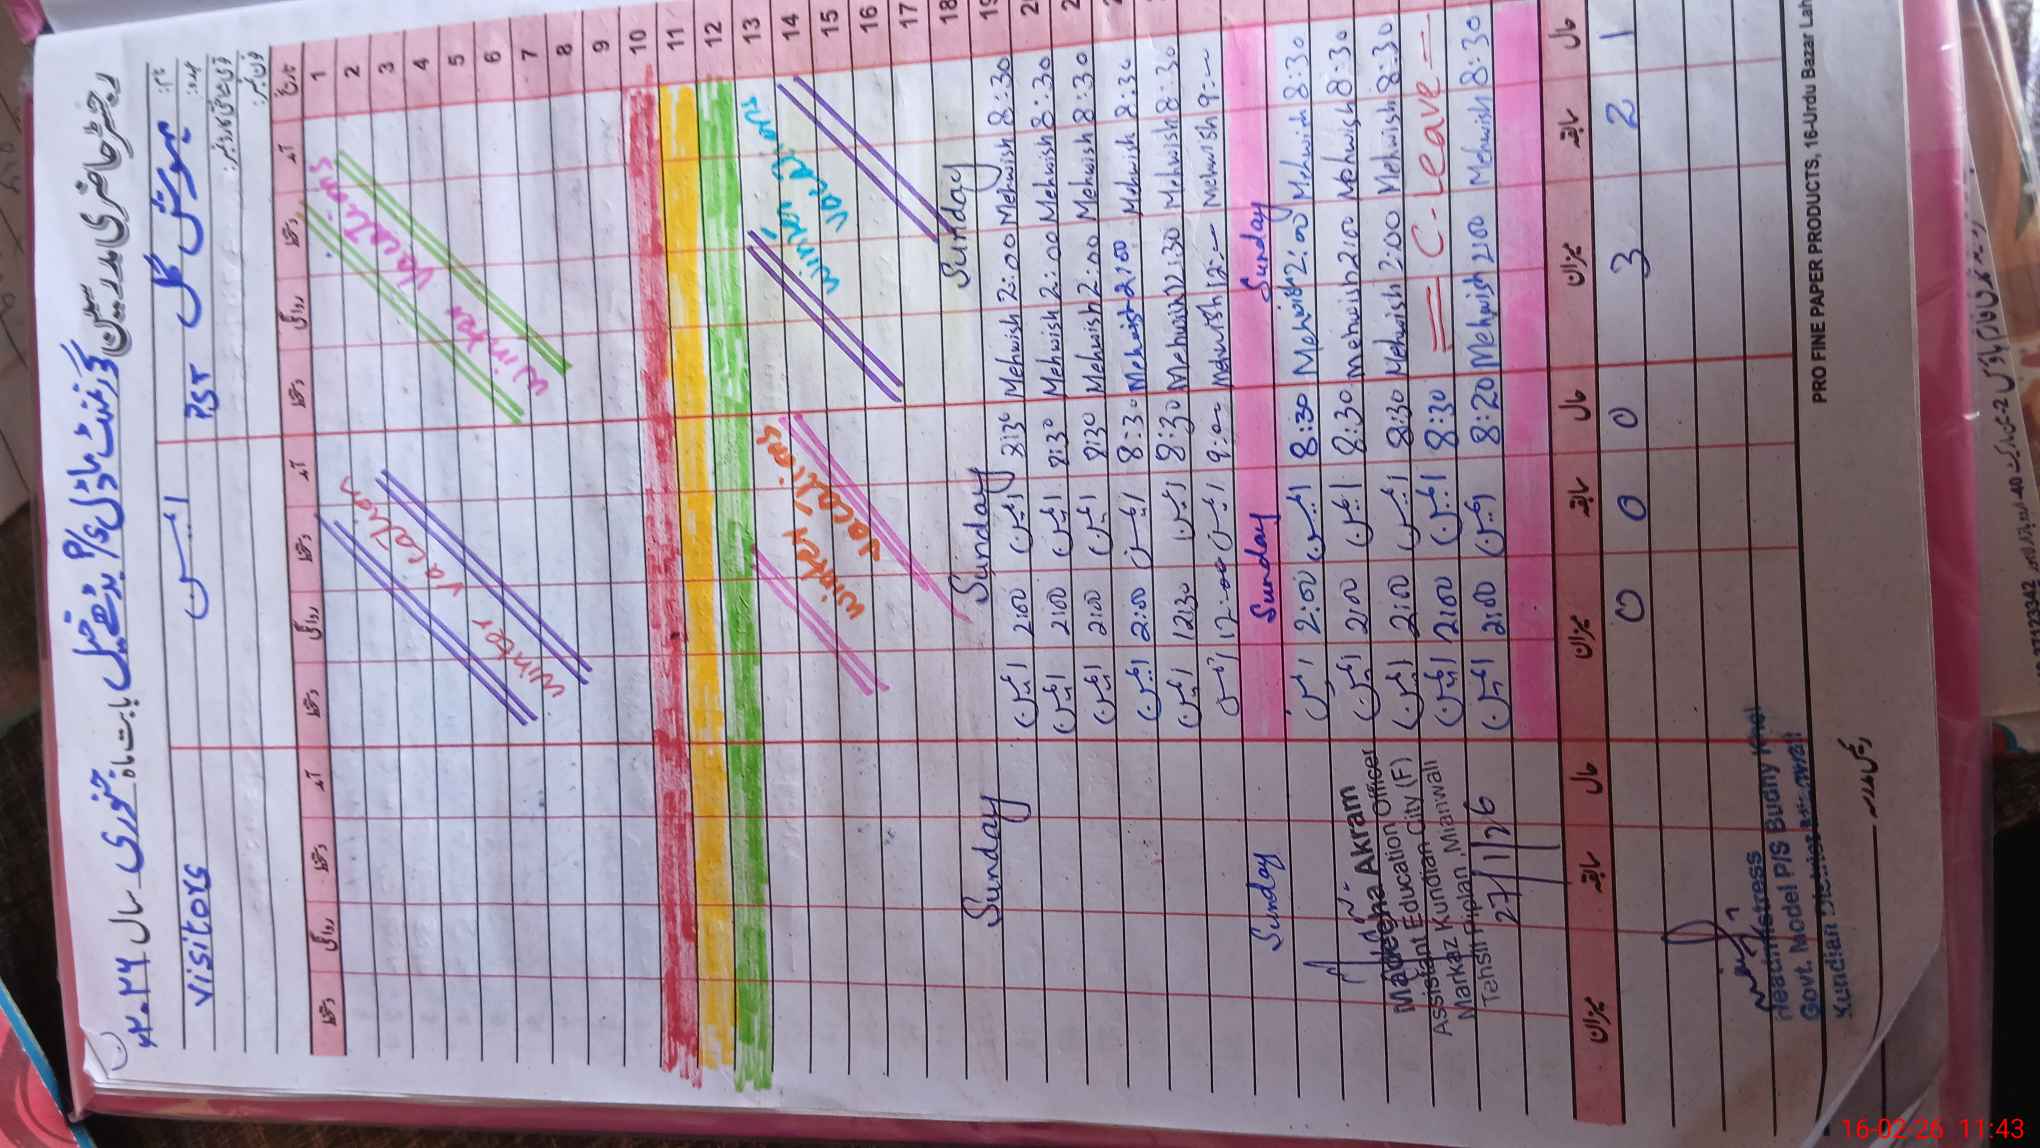 رجسٹر حاضری مدرسین گورنمنٹ ماڈل P/S بڈھے خیل بابت ماہ جنوری سال ۲۰۲۶ء
نام: مہوش گل
عہدہ: PST
Visitors
تاریخ آمد دستخط روانگی دستخط آمد دستخط روانگی دستخط آمد دستخط روانگی دستخط
1
2
3
4
5
6
7
8
9
10
11
12
13
14
15
16
17
18
19
winter vacations
winter vacation
winter vacations
winter vacations
Sunday Sunday Sunday
8:30 Mehwish 2:00 Mehwish 8:30 2:00
8:30 Mehwish 2:00 Mehwish 8:30 2:00
8:30 Mehwish 2:00 Mehwish 8:30 2:00
8:30 Mehwish 2:00 Mehwish 8:30 2:00
8:30 Mehwish 12:30 Mehwish 8:30 12:30
9:— Mehwish 12:— Mehwish 9:00 12:00
Sunday Sunday Sunday
8:30 Mehwish 2:00 Mehwish 8:30 2:00
8:30 Mehwish 2:00 Mehwish 8:30 2:00
8:30 Mehwish 2:00 Mehwish 8:30 2:00
= C-Leave = 8:30 2:00
8:30 Mehwish 2:00 Mehwish 8:20 2:00
Madeeha Akram
Assistant Education Officer
Markaz Kundian City (F)
Tehsil Piplan, Mianwali
27/1/26
حال سابقہ میزان حال سابقہ میزان حال سابقہ میزان
1 2 3 0 0 0
Headmistress
Govt. Model P/S Budhy Khel
Kundian District Mianwali
PRO FINE PAPER PRODUCTS, 16-Urdu Bazar Lah
16-02-26 11:43